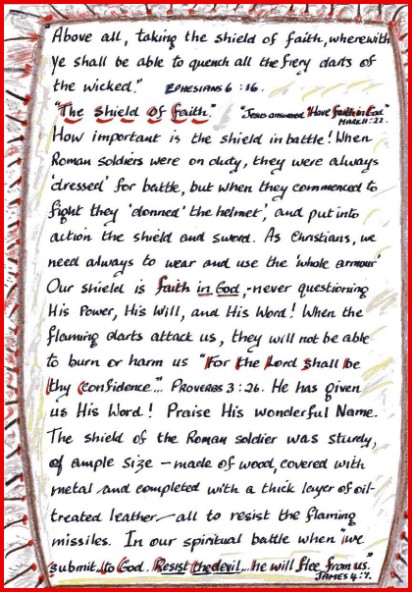 "Above all, taking the shield of faith, wherewith
ye shall be able to quench all the fiery darts of
the wicked." EPHESIANS 6:16.
"The Shield Of faith." "Jesus answered "Have faith in God" MARK 11:22.
How important is the shield in battle! When
Roman soldiers were on duty, they were always
'dressed' for battle, but when they commenced to
fight they 'donned' the helmet', and put into
action the shield and sword. As Christians, we
need always to wear and use the 'whole armour'
Our shield is faith in God, - never questioning
His Power, His Will, and His Word! When the
flaming darts attack us, they will not be able
to burn or harm us "For the Lord shall be
thy confidence..." PROVERBS 3:26. He has given
us His Word! Praise His wonderful Name.
The shield of the Roman soldier was sturdy,
of ample size - made of wood, covered with
metal and completed with a thick layer of oil-
treated leather - all to resist the flaming
missiles. In our spiritual battle when "we
submit..to God. Resist the devil... he will flee from us."
JAMES 4:7.